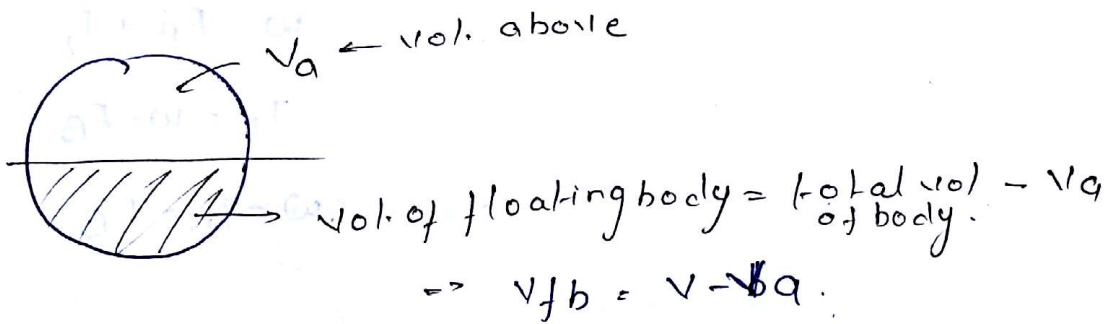 Va ← vol. above
vol. of floating body = total vol of body. - Va
=> Vfb = V - Va.